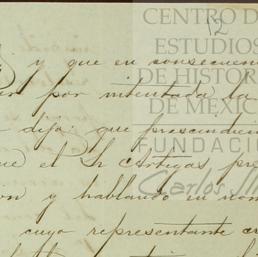 CENTRO DE
12
ESTUDIOS
DE HISTOR
DE MÉXICO
FUNDAC
Carlos Sli
y que en consecuen
por intentada la
dijo: que prescindie
que el Sr Artigas, pre
y hablando en nom
cuyo representante cr